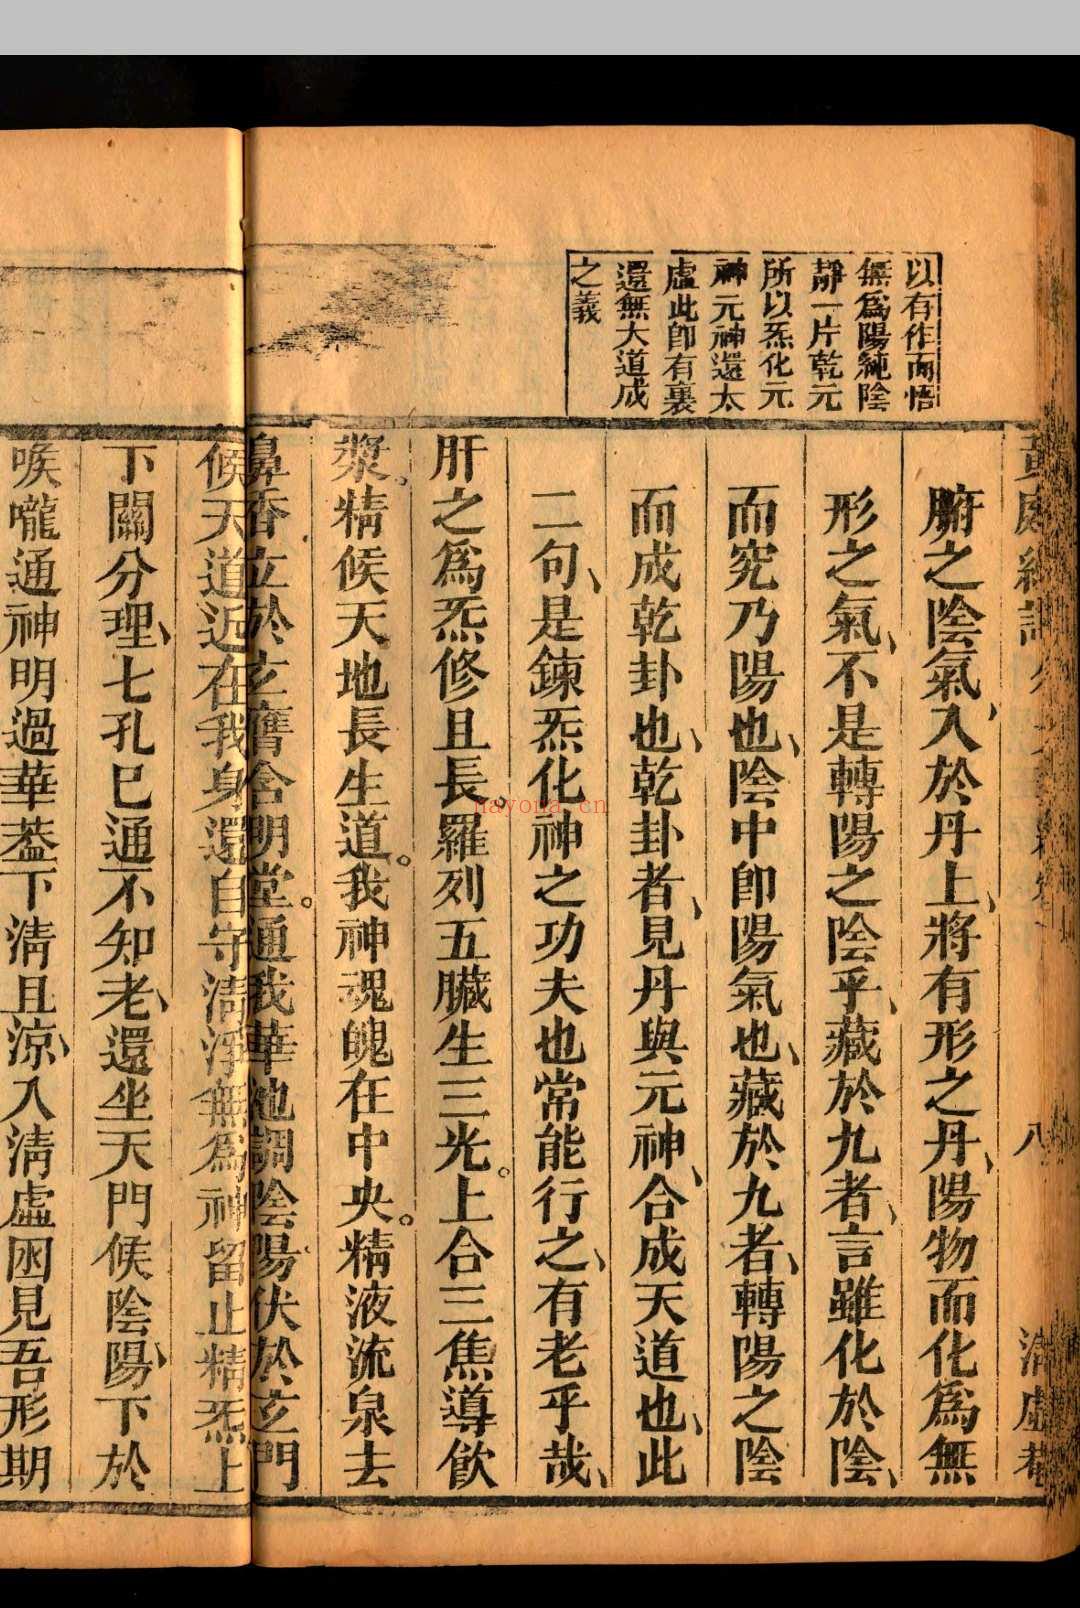 以有作而悟
無爲陽純陰
靜一片乾元
所以炁化元
神元神還太
虛此卽有裏
還無大道成
之義
腑之陰氣、入於丹上、將有形之丹、陽物而化爲無
形之氣、不是轉陽之陰乎、藏於九者、言雖化於陰、
而究乃陽也、陰中卽陽氣也、藏於九者、轉陽之陰
而成乾卦也、乾卦者、見丹與元神、合成天道也、此
二句、是鍊炁化神之功夫也常能行之、有老乎哉、
肝之爲炁修且長羅列五臟生三光。上合三焦導飲
漿。精候天地長生道。我神魂魄在中央。精液流泉去
鼻香立於玄膺含明堂。通我華池調陰陽伏於玄門
候天道近在我身還自守淸淨無爲神留止精炁上
下關分理、七孔巳通不知老、還坐天門候陰陽、下於
喉嚨通神明過華葢下淸且涼、入淸虛困見吾形期
八
nayona.cn